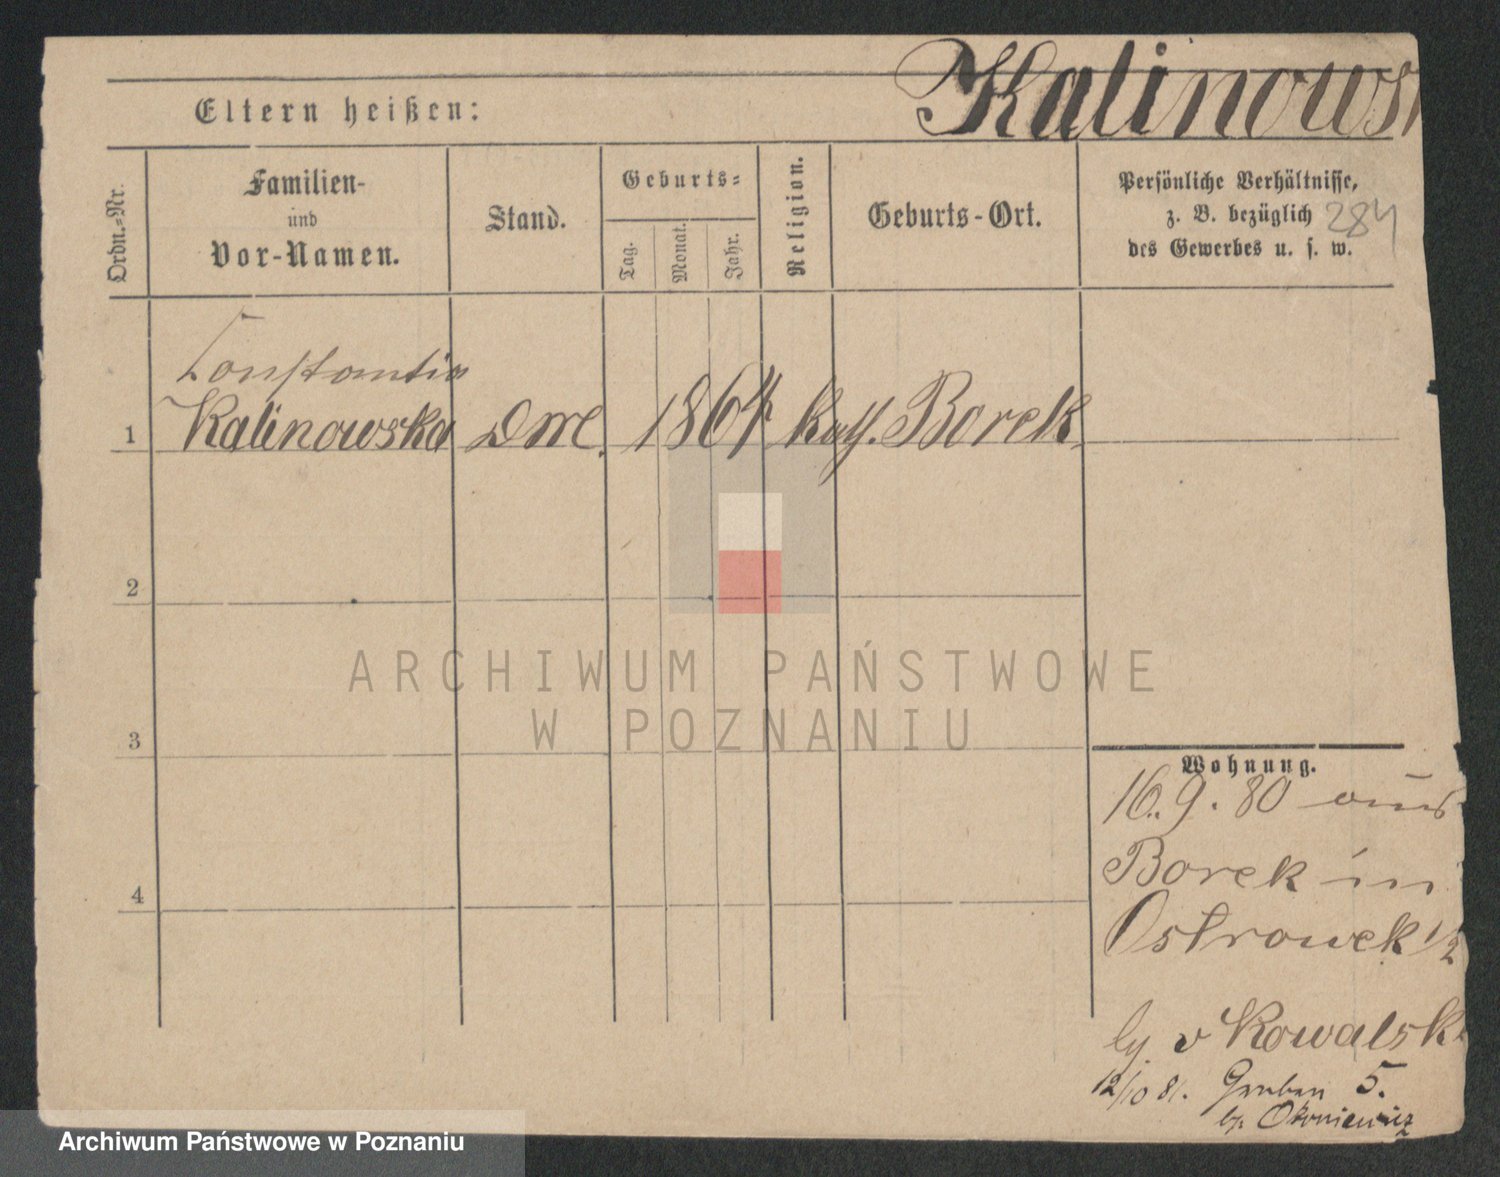 Kalinows
Eltern heißen:
Ordn.-Nr.
Familien-
und
Vor-Namen.
Stand.
Geburts-
Tag.
Monat.
Jahr.
Religion.
Geburts-Ort.
Persönliche Verhältnisse,
z. B. bezüglich
des Gewerbes u. s. w.
284
Constantia
1 Kalinowska 1864 kath. Borek
2
3
4
Wohnung.
16.9.80 aus
Borek in
Ostrowek 1/2
v Kowalsk
12/10 81. Graben 5.
Okoniewicz
ARCHIWUM PAŃSTWOWE
W POZNANIU
Archiwum Państwowe w Poznaniu